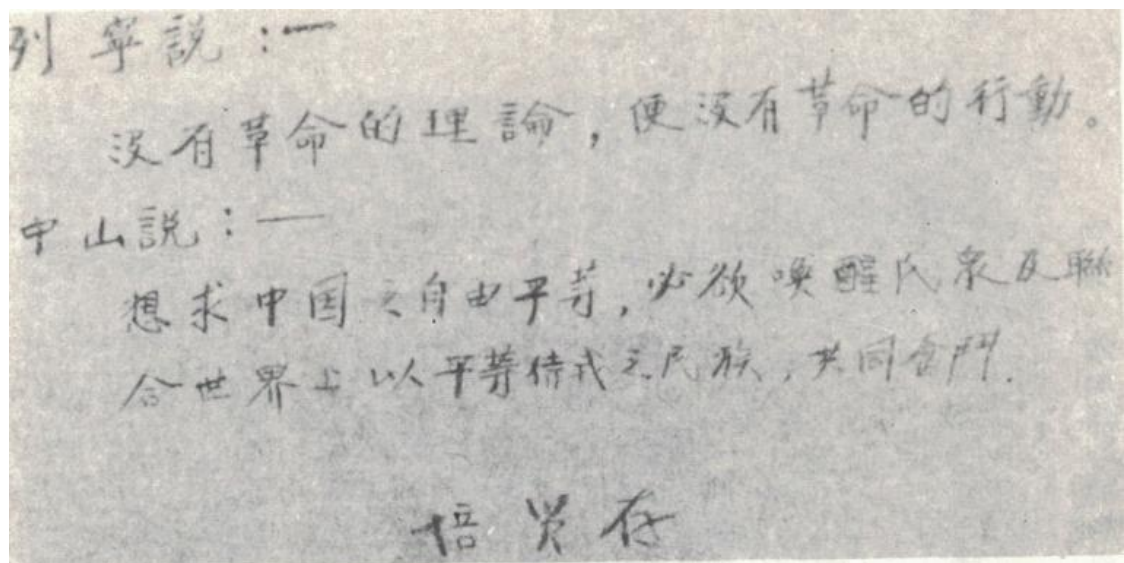 列寧説：一
没有革命的理論，便没有革命的行動。
中山説：——
想求中国之自由平等，必欲唤醒民衆及聯
合世界上以平等待我之民族，共同奮鬥．
培 存